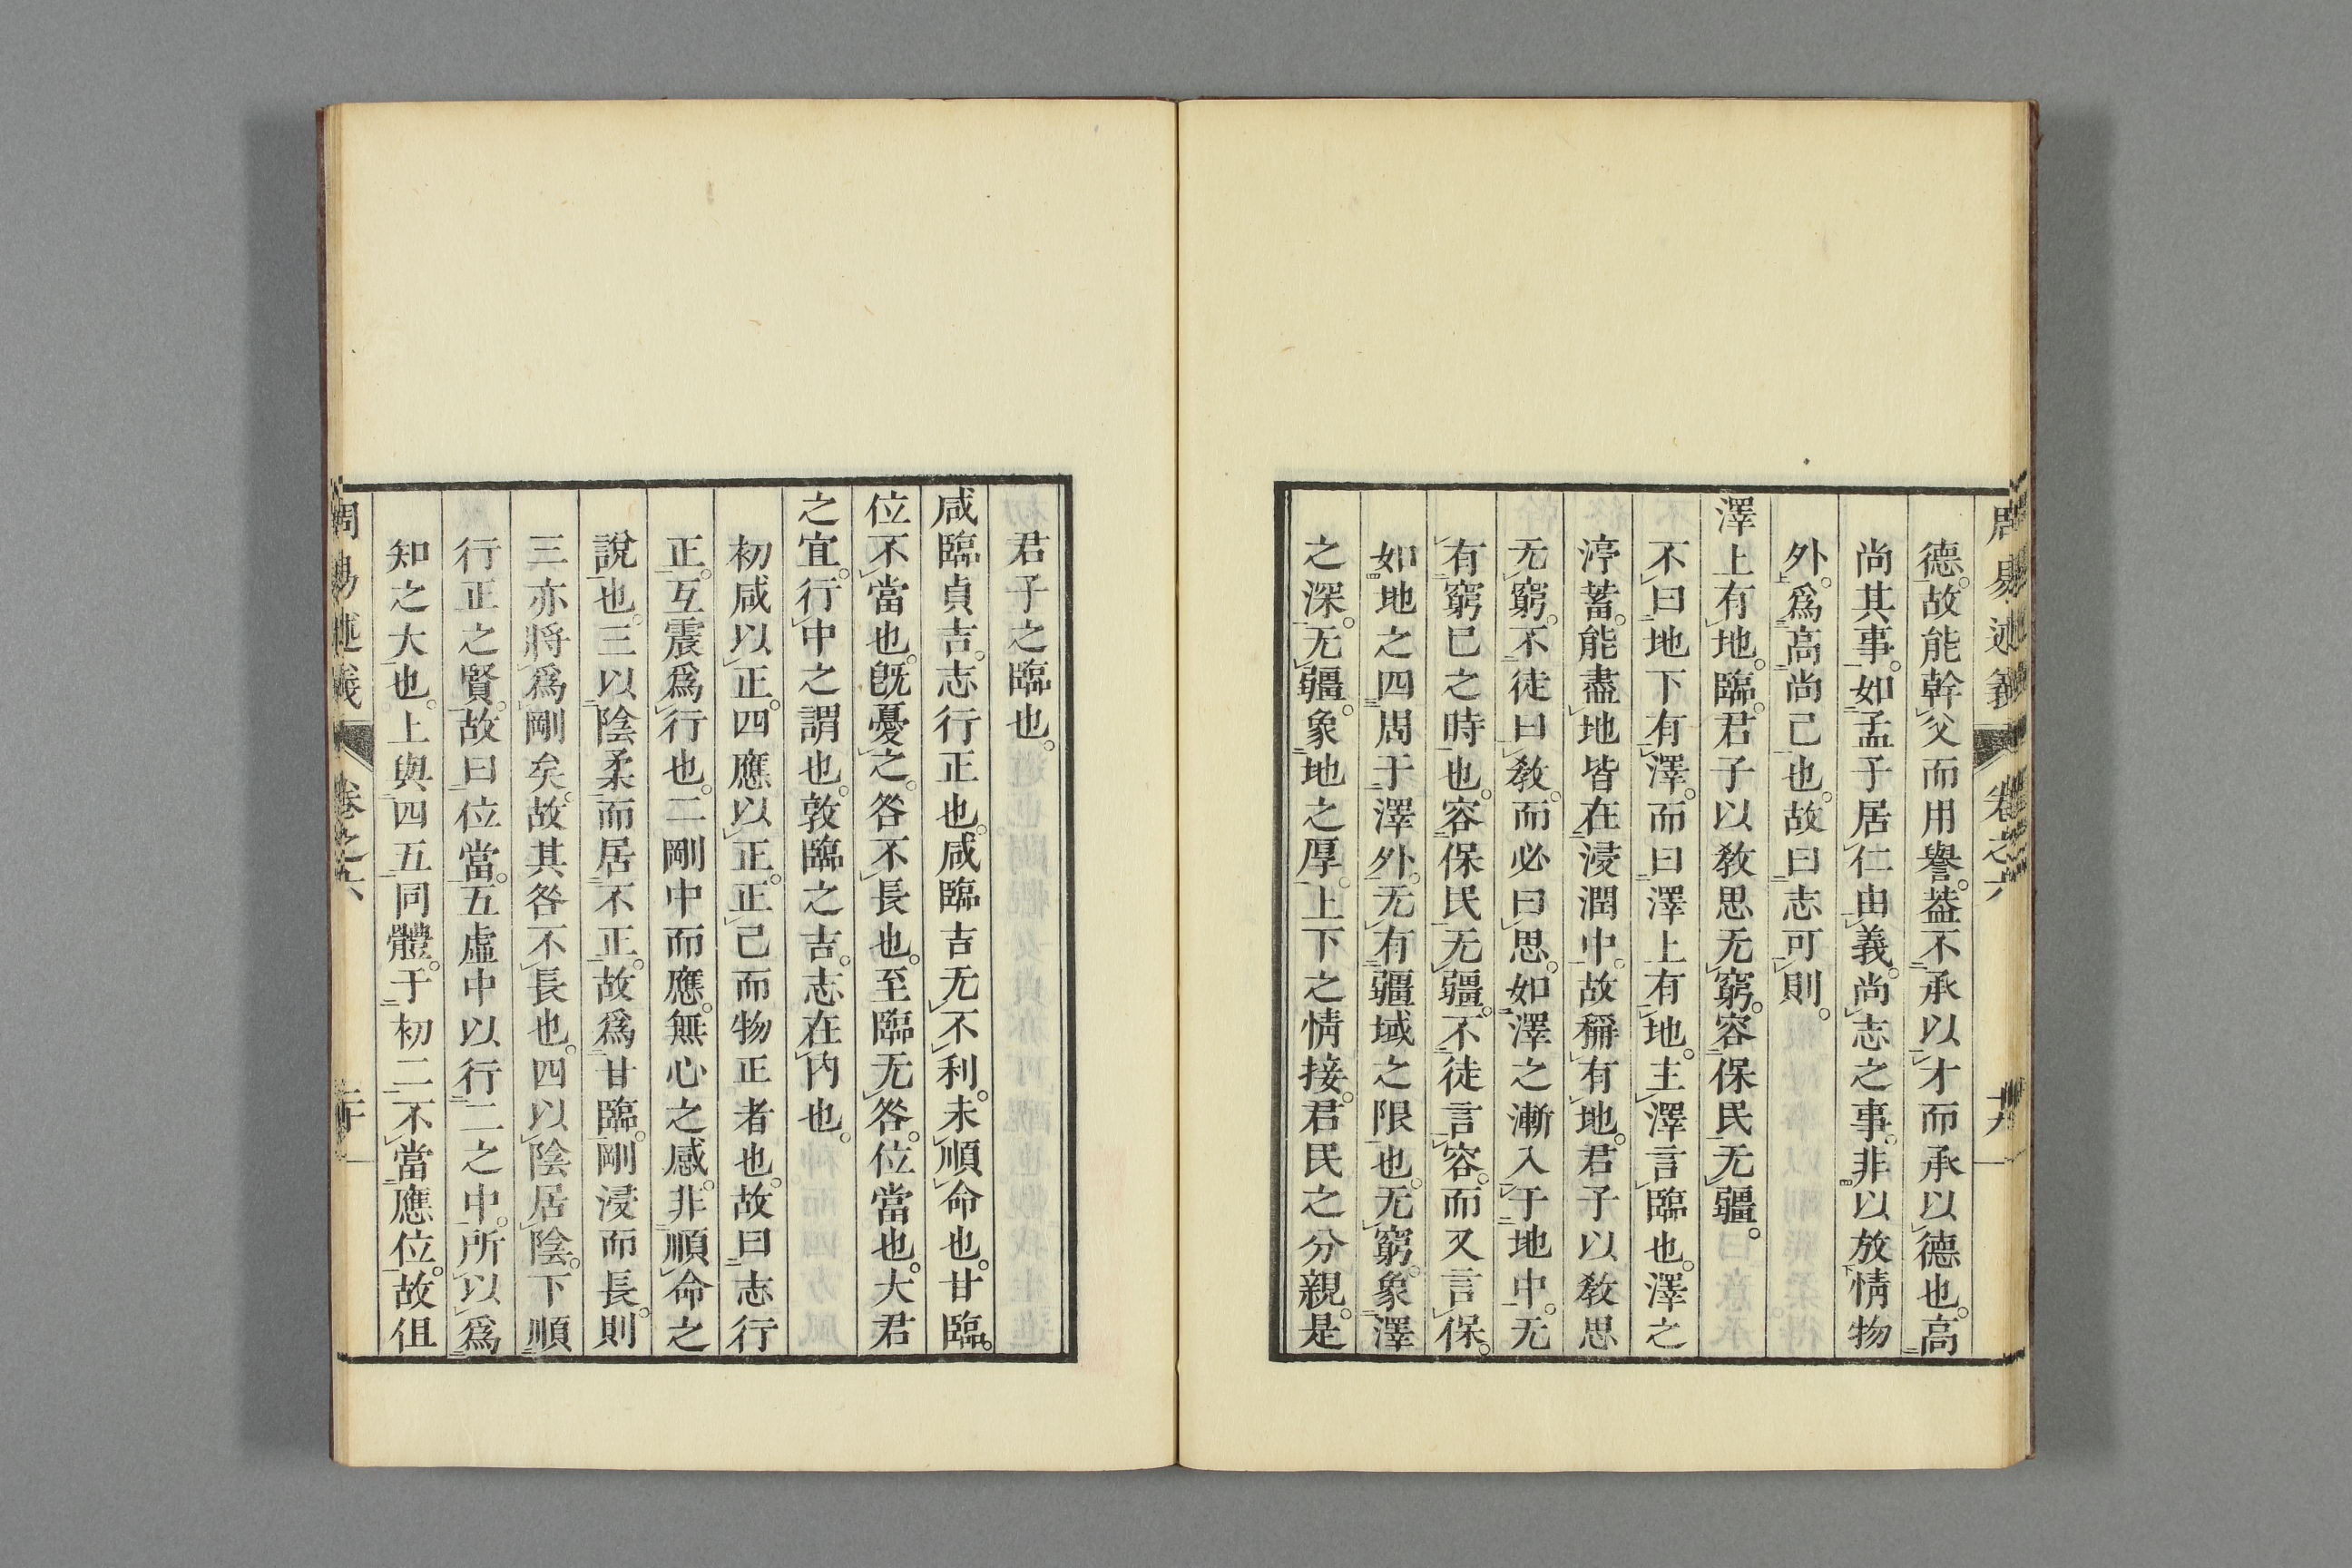 周易述義 卷之六 十九
德。故能幹父而用譽。葢不承以才而承以德也。高
尚其事。如孟子居仁由義。尚志之事。非以放情物
外。爲高尚己也。故曰志可則。
澤上有地。臨。君子以敎思无窮。容保民无疆。
不曰地下有澤。而曰澤上有地。主澤言臨也。澤之
渟蓄。能盡地皆在浸潤中。故稱有地。君子以敎思
无窮。不徒曰敎。而必曰思。如澤之漸入于地中。无
有窮已之時也。容保民无疆。不徒言容。而又言保。
如地之四周于澤外。无有疆域之限也。无窮。象澤
之深。无疆。象地之厚。上下之情接。君民之分親。是
君子之臨也。
咸臨貞吉。志行正也。咸臨吉无不利。未順命也。甘臨。
位不當也。旣憂之。咎不長也。至臨无咎。位當也。大君
之宜。行中之謂也。敦臨之吉。志在內也。
初咸以正。四應以正。正己而物正者也。故曰志行
正。互震爲行也。二剛中而應。無心之感。非順命之
說也。三以陰柔而居不正。故爲甘臨。剛浸而長。則
三亦將爲剛矣。故其咎不長也。四以陰居陰。下順
行正之賢。故曰位當。五虛中以行二之中。所以爲
知之大也。上與四五同體。于初二不當應位。故但
周易述義 卷之六 二十